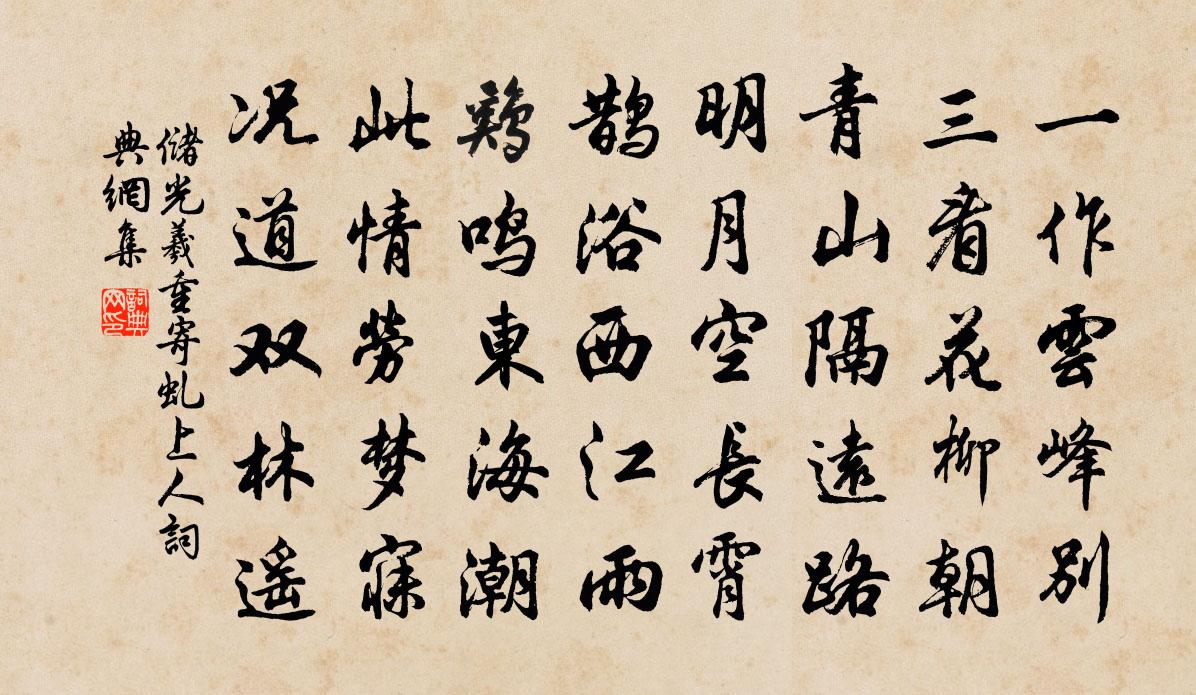 一作雲峰別
三看花柳朝
青山隔遠路
明月空長霄
鵲浴西江雨
鷄鳴東海潮
此情勞梦寐
况道双林遥
儲光羲重寄虬上人詞
典網集
詞典
网印